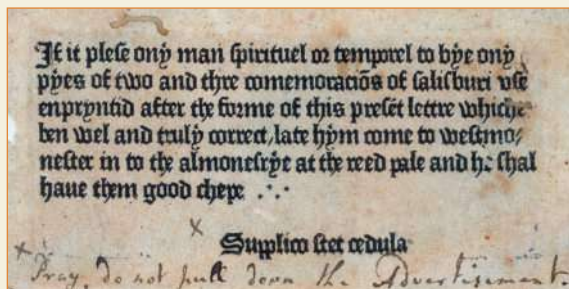 If it plese ony man spirituel or temporel to bye ony
pyes of two and thre comemoraciõs of salisburi vse
enpryntid after the forme of this presẽt lettre whiche
ben wel and truly correct, late hym come to westmo-
nester in to the almonesrye at the reed pale and he shal
haue them good chepe .·.
Supplico stet cedula
Pray, do not pull down the Advertisement.